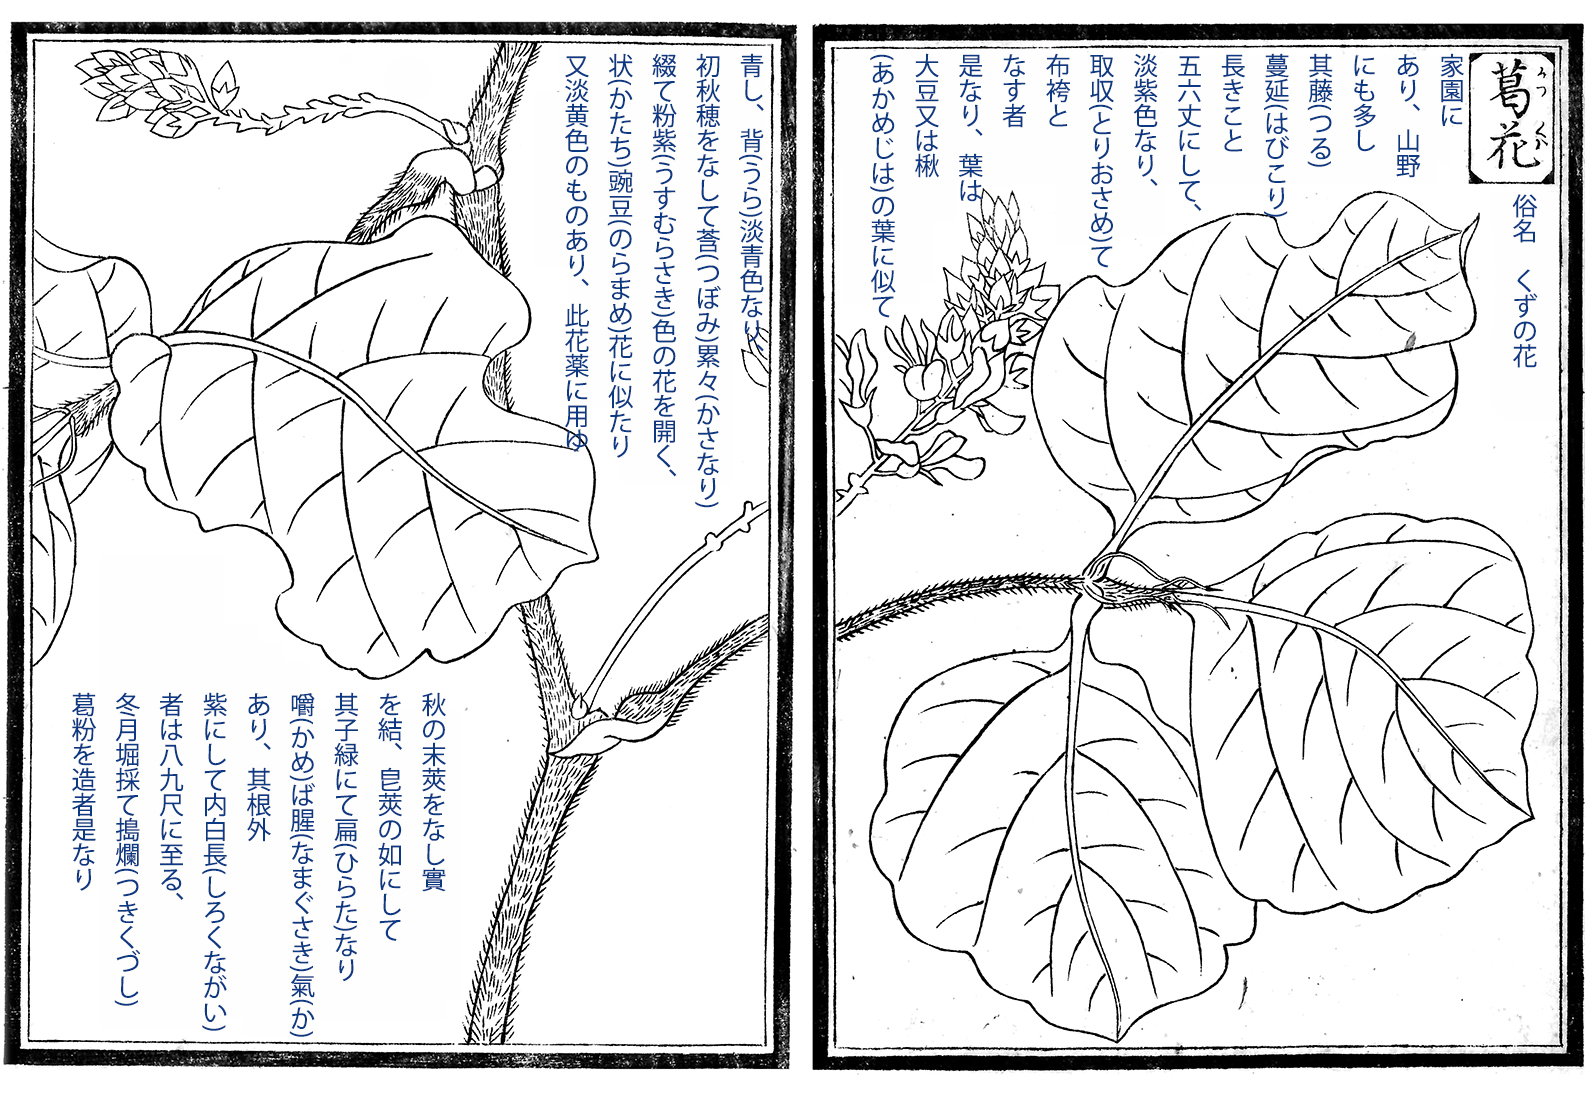 葛花
俗名　くずの花
家園に
あり、山野
にも多し
其藤(つる)
蔓延(はびこり)
長きこと
五六丈にして、
淡紫色なり、
取収(とりおさめ)て
布袴と
なす者
是なり、葉は
大豆又は楸
(あかめじは)の葉に似て
青し、背(うら)淡青色なり、
初秋穂をなして莟(つぼみ)累々(かさなり)
綴て粉紫(うすむらさき)色の花を開く、
状(かたち)豌豆(のらまめ)花に似たり
又淡黄色のものあり、此花薬に用ゆ
秋の末莢をなし實
を結、皀莢の如にして
其子緑にて扁(ひらた)なり
嚼(かめ)ば腥(なまぐさき)氣(か)
あり、其根外
紫にして内白長(しろくながい)
者は八九尺に至る、
冬月堀採て搗爛(つきくづし)
葛粉を造者是なり